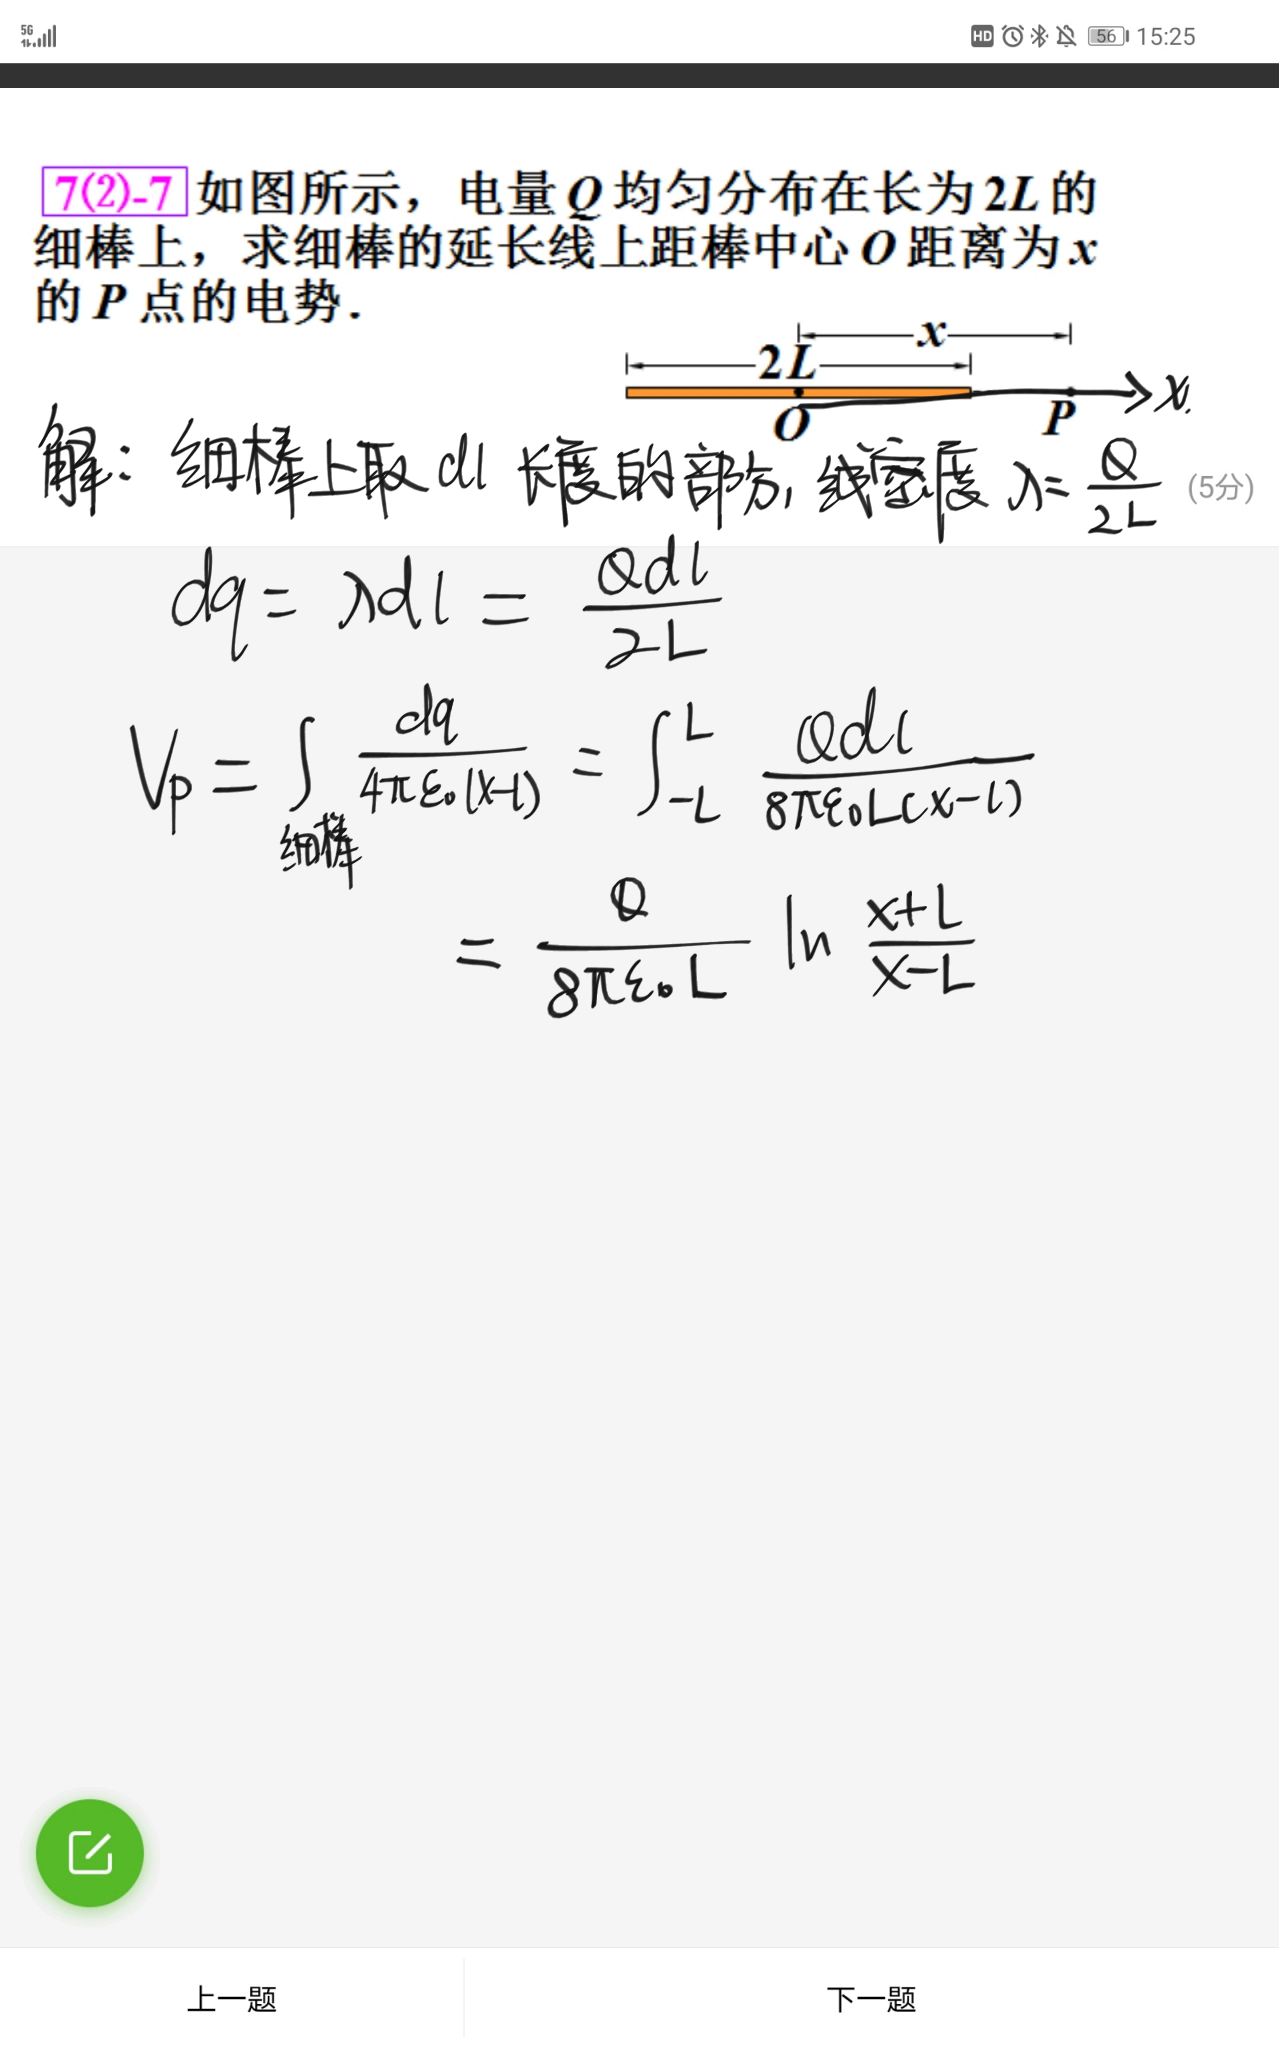 5G
HD 56 15:25
7(2)-7 如图所示，电量 Q 均匀分布在长为 2L 的
细棒上，求细棒的延长线上距棒中心 O 距离为 x
的 P 点的电势．
x
2L
O P x
解：细棒上取 dl 长度的部分，线密度 λ = Q/2L (5分)
dq = λdl = Qdl/2L
Vp = ∫细棒 dq/4πε₀(x-l) = ∫_{-L}^{L} Qdl/8πε₀L(x-l)
= Q/8πε₀L ln x+L/x-L
上一题 下一题